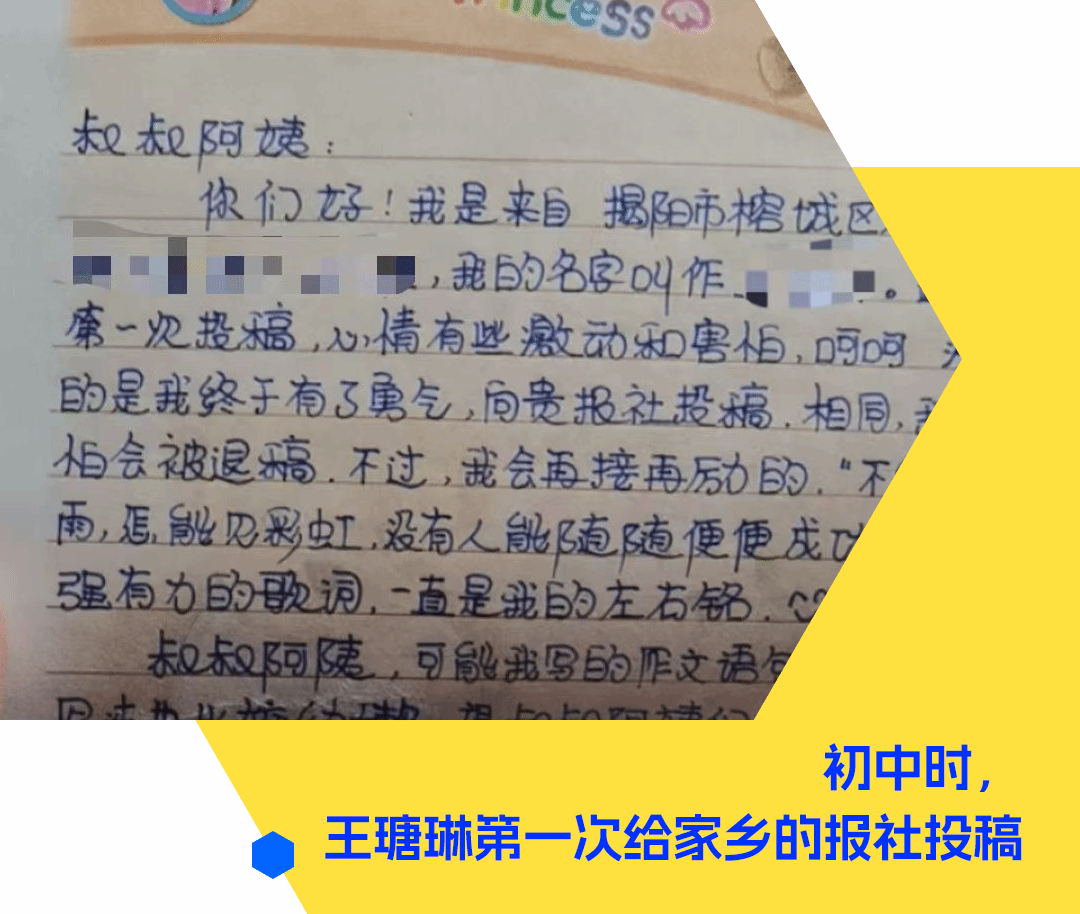 Princess
叔叔阿姨：
你们好！我是来自 揭阳市榕城区
，我的名字叫作 。
第一次投稿，心情有些激动和害怕，呵呵
的是我终于有了勇气，向贵报社投稿．相同，
怕会被退稿．不过，我会再接再励的．“不
雨，怎能见彩虹，没有人能随随便便成功
强有力的歌词，一直是我的左右铭．
叔叔阿姨，可能我写的作文语句
初中时，
王瑭琳第一次给家乡的报社投稿